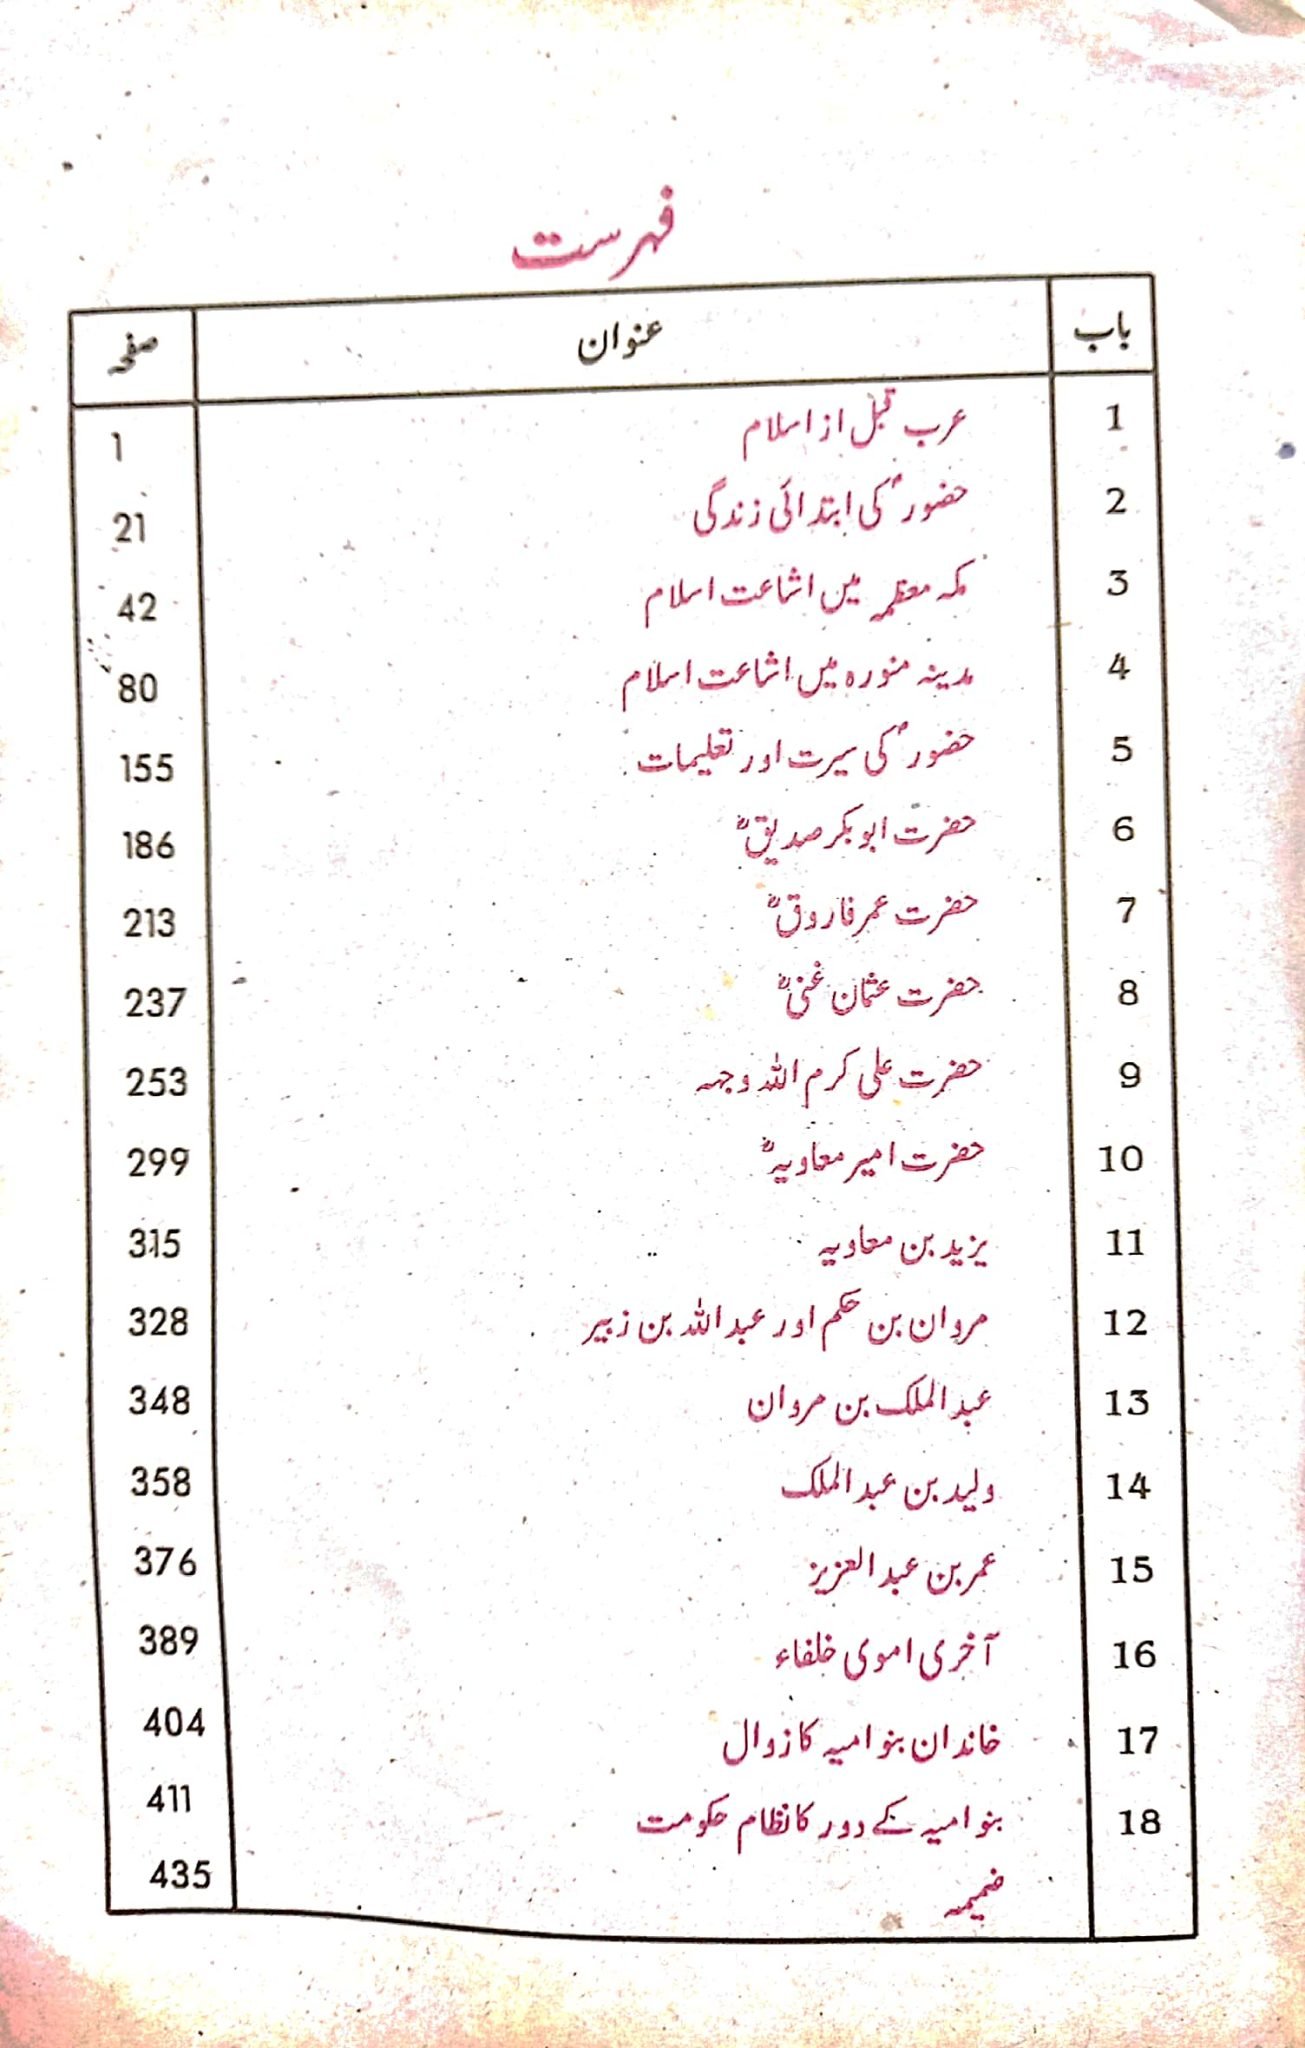 فہرست
باب عنوان صفحہ
1 عرب قبل از اسلام 1
2 حضورؐ کی ابتدائی زندگی 21
3 مکہ معظمہ میں اشاعت اسلام 42
4 مدینہ منورہ میں اشاعت اسلام 80
5 حضورؐ کی سیرت اور تعلیمات 155
6 حضرت ابوبکر صدیقؓ 186
7 حضرت عمر فاروقؓ 213
8 حضرت عثمان غنیؓ 237
9 حضرت علی کرم اللہ وجہہ 253
10 حضرت امیر معاویہؓ 299
11 یزید بن معاویہ 315
12 مروان بن حکم اور عبداللہ بن زبیر 328
13 عبدالملک بن مروان 348
14 ولید بن عبدالملک 358
15 عمر بن عبدالعزیز 376
16 آخری اموی خلفاء 389
17 خاندان بنو امیہ کا زوال 404
18 بنو امیہ کے دور کا نظام حکومت 411
ضمیمہ 435